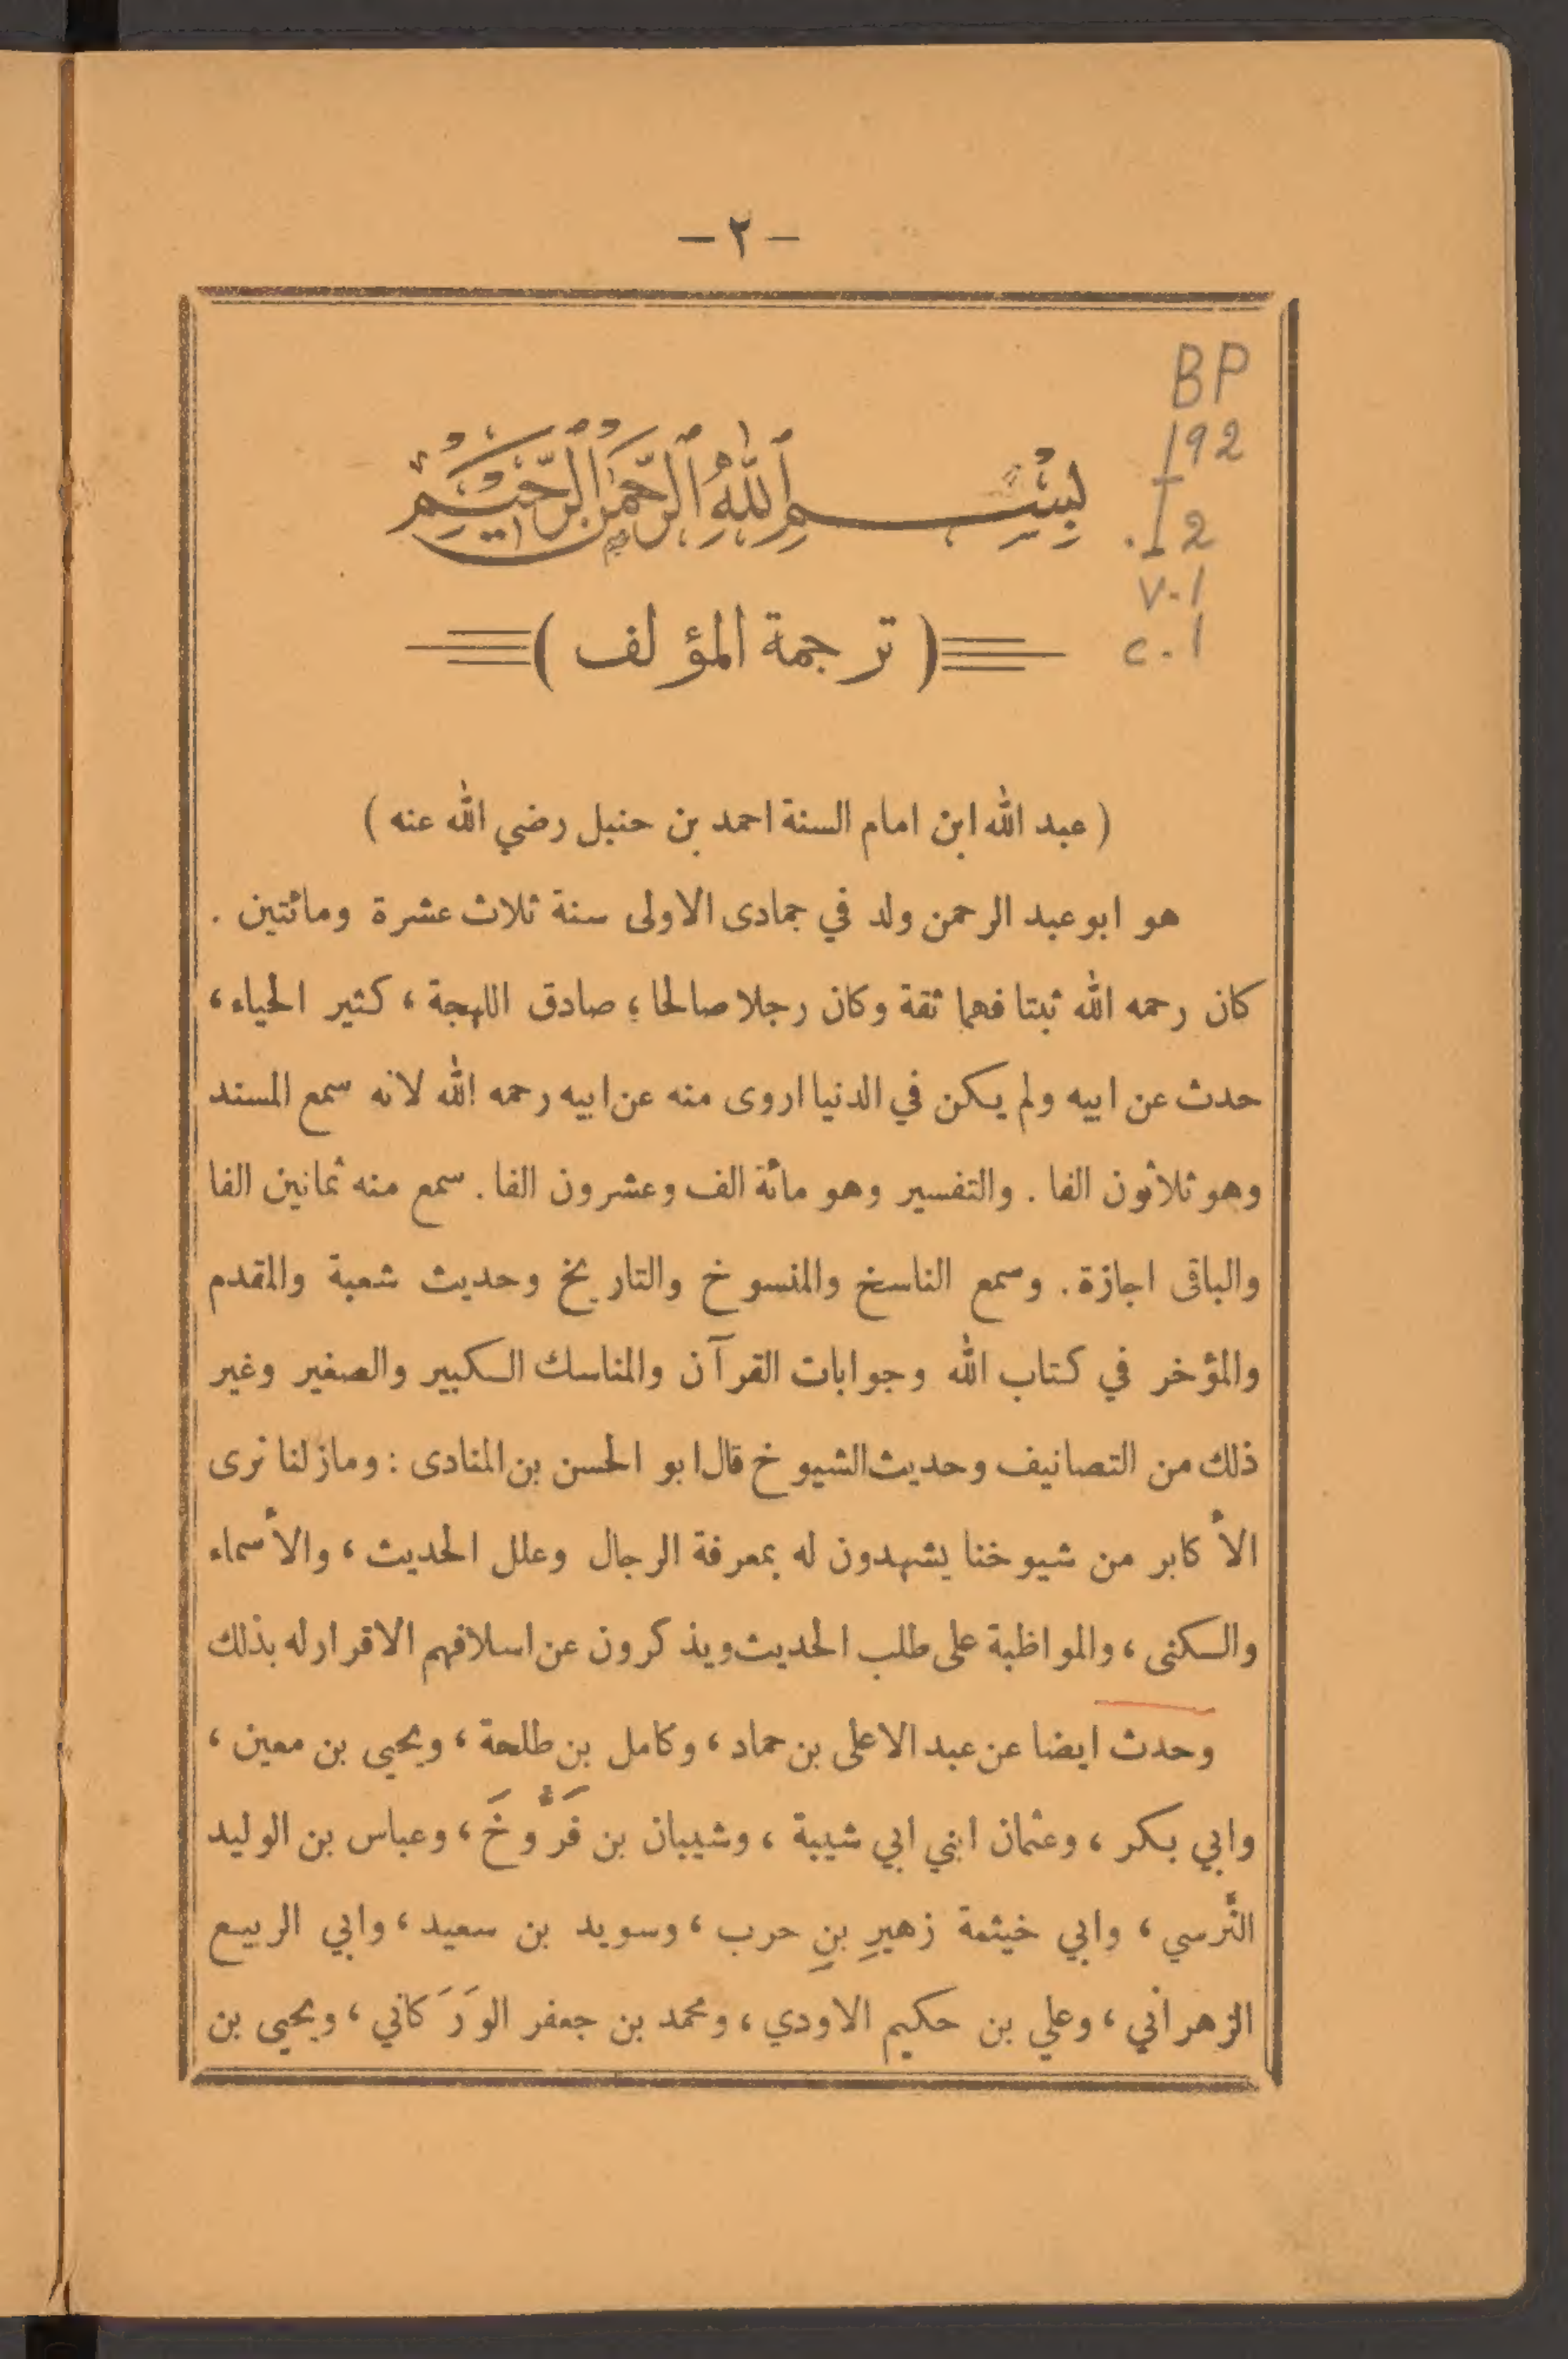 — ٢ —
BP
192
.I2
v.1
c.1
بِسْمِ ٱللَّهِ ٱلرَّحْمَٰنِ ٱلرَّحِيمِ
( ترجمة المؤلف )
( عبد الله ابن امام السنة احمد بن حنبل رضي الله عنه )
هو ابو عبد الرحمن ولد في جمادى الاولى سنة ثلاث عشرة ومائتين .
كان رحمه الله ثبتا فهما ثقة وكان رجلا صالحا ؛ صادق اللهجة ، كثير الحياء ،
حدث عن ابيه ولم يكن في الدنيا اروى منه عن ابيه رحمه الله لانه سمع المسند
وهو ثلاثون الفا . والتفسير وهو مائة الف وعشرون الفا . سمع منه ثمانين الفا
والباقى اجازة . وسمع الناسخ والمنسوخ والتاريخ وحديث شعبة والمقدم
والمؤخر في كتاب الله وجوابات القرآن والمناسك الكبير والصغير وغير
ذلك من التصانيف وحديث الشيوخ قال ابو الحسن بن المنادى : ومازلنا نرى
الأكابر من شيوخنا يشهدون له بمعرفة الرجال وعلل الحديث ، والأسماء
والكنى ، والمواظبة على طلب الحديث ويذكرون عن اسلافهم الاقرار له بذلك
وحدث ايضا عن عبد الاعلى بن حماد ، وكامل بن طلحة ، ويحيى بن معين ،
وابي بكر ، وعثمان ابني ابي شيبة ، وشيبان بن فَرُّوخَ ، وعباس بن الوليد
النَّرسي ، وابي خيثمة زهيرِ بنِ حرب ، وسويد بن سعيد ، وابي الربيع
الزهراني ، وعلي بن حكيم الاودي ، ومحمد بن جعفر الوَرَكاني ، ويحيى بن